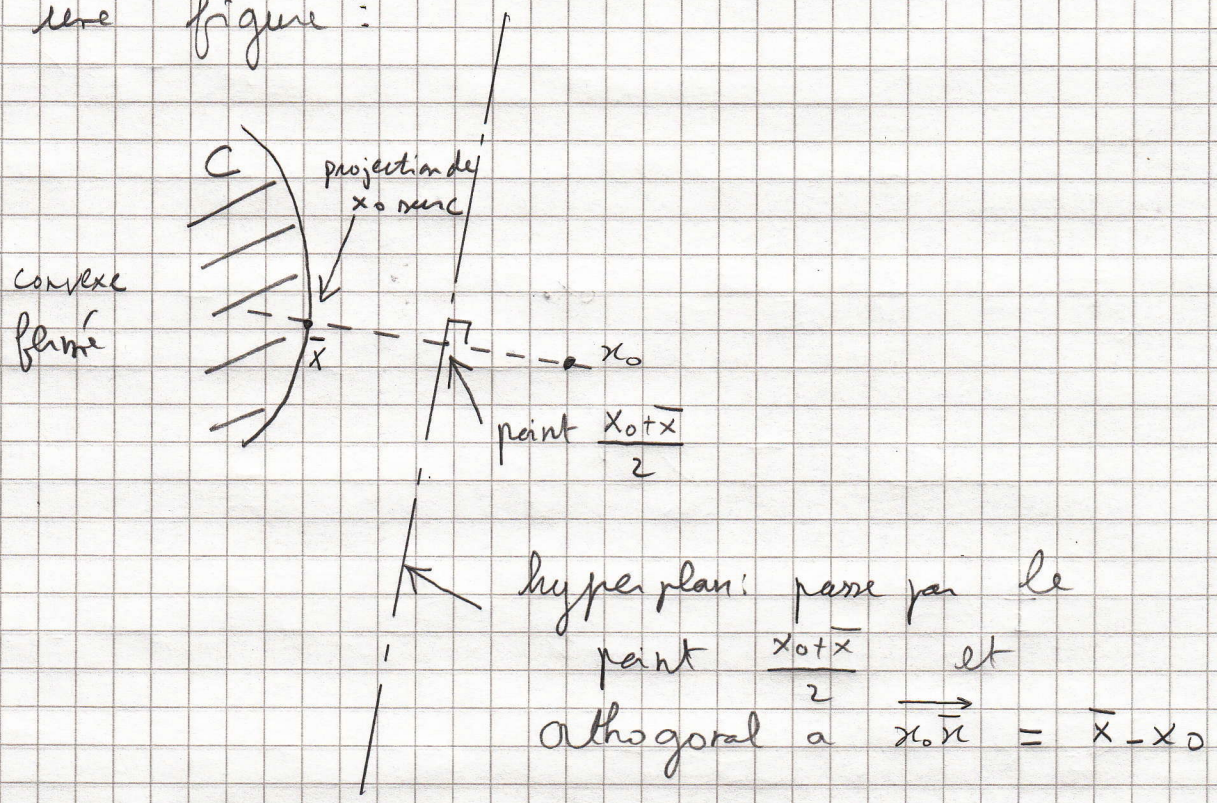 une figure :
C
projection de
x₀ sur C
convexe
fermé
x̄
x₀
point (x₀+x̄)/2
hyperplan: passe par le
point (x₀+x̄)/2 et
orthogonal a x₀x̄⃗ = x̄ - x₀